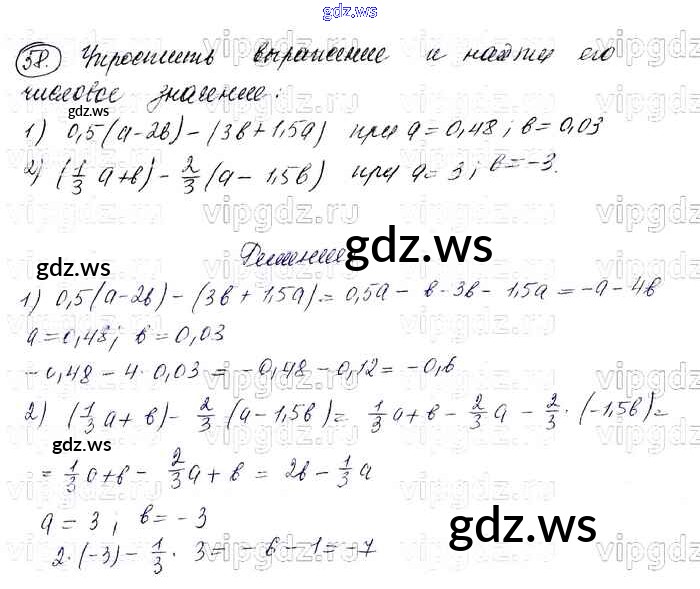 gdz.ws
58. Упростить выражение и найти его
числовое значение:
gdz.ws
1) 0,5(a-2в) - (3в + 1,5a) при a = 0,48; в = 0,03
2) (1/3 a+в) - 2/3 (a - 1,5в) при a = 3; в = -3.
gdz.ws
Решение
gdz.ws
1) 0,5(a-2в) - (3в + 1,5a) = 0,5a - в - 3в - 1,5a = -a - 4в
a = 0,48; в = 0,03
-0,48 - 4 · 0,03 = -0,48 - 0,12 = -0,6
2) (1/3 a + в) - 2/3 (a - 1,5в) = 1/3 a + в - 2/3 a - 2/3 · (-1,5в) =
gdz.ws
= 1/3 a + в - 2/3 a + в = 2в - 1/3 a
a = 3; в = -3
2 · (-3) - 1/3 · 3 = -6 - 1 = -7
gdz.ws
vipgdz.ru